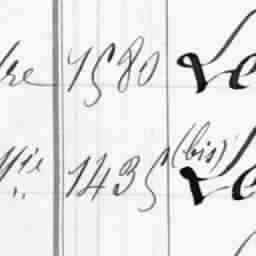 re 1580 Le
1435 (bis) Le